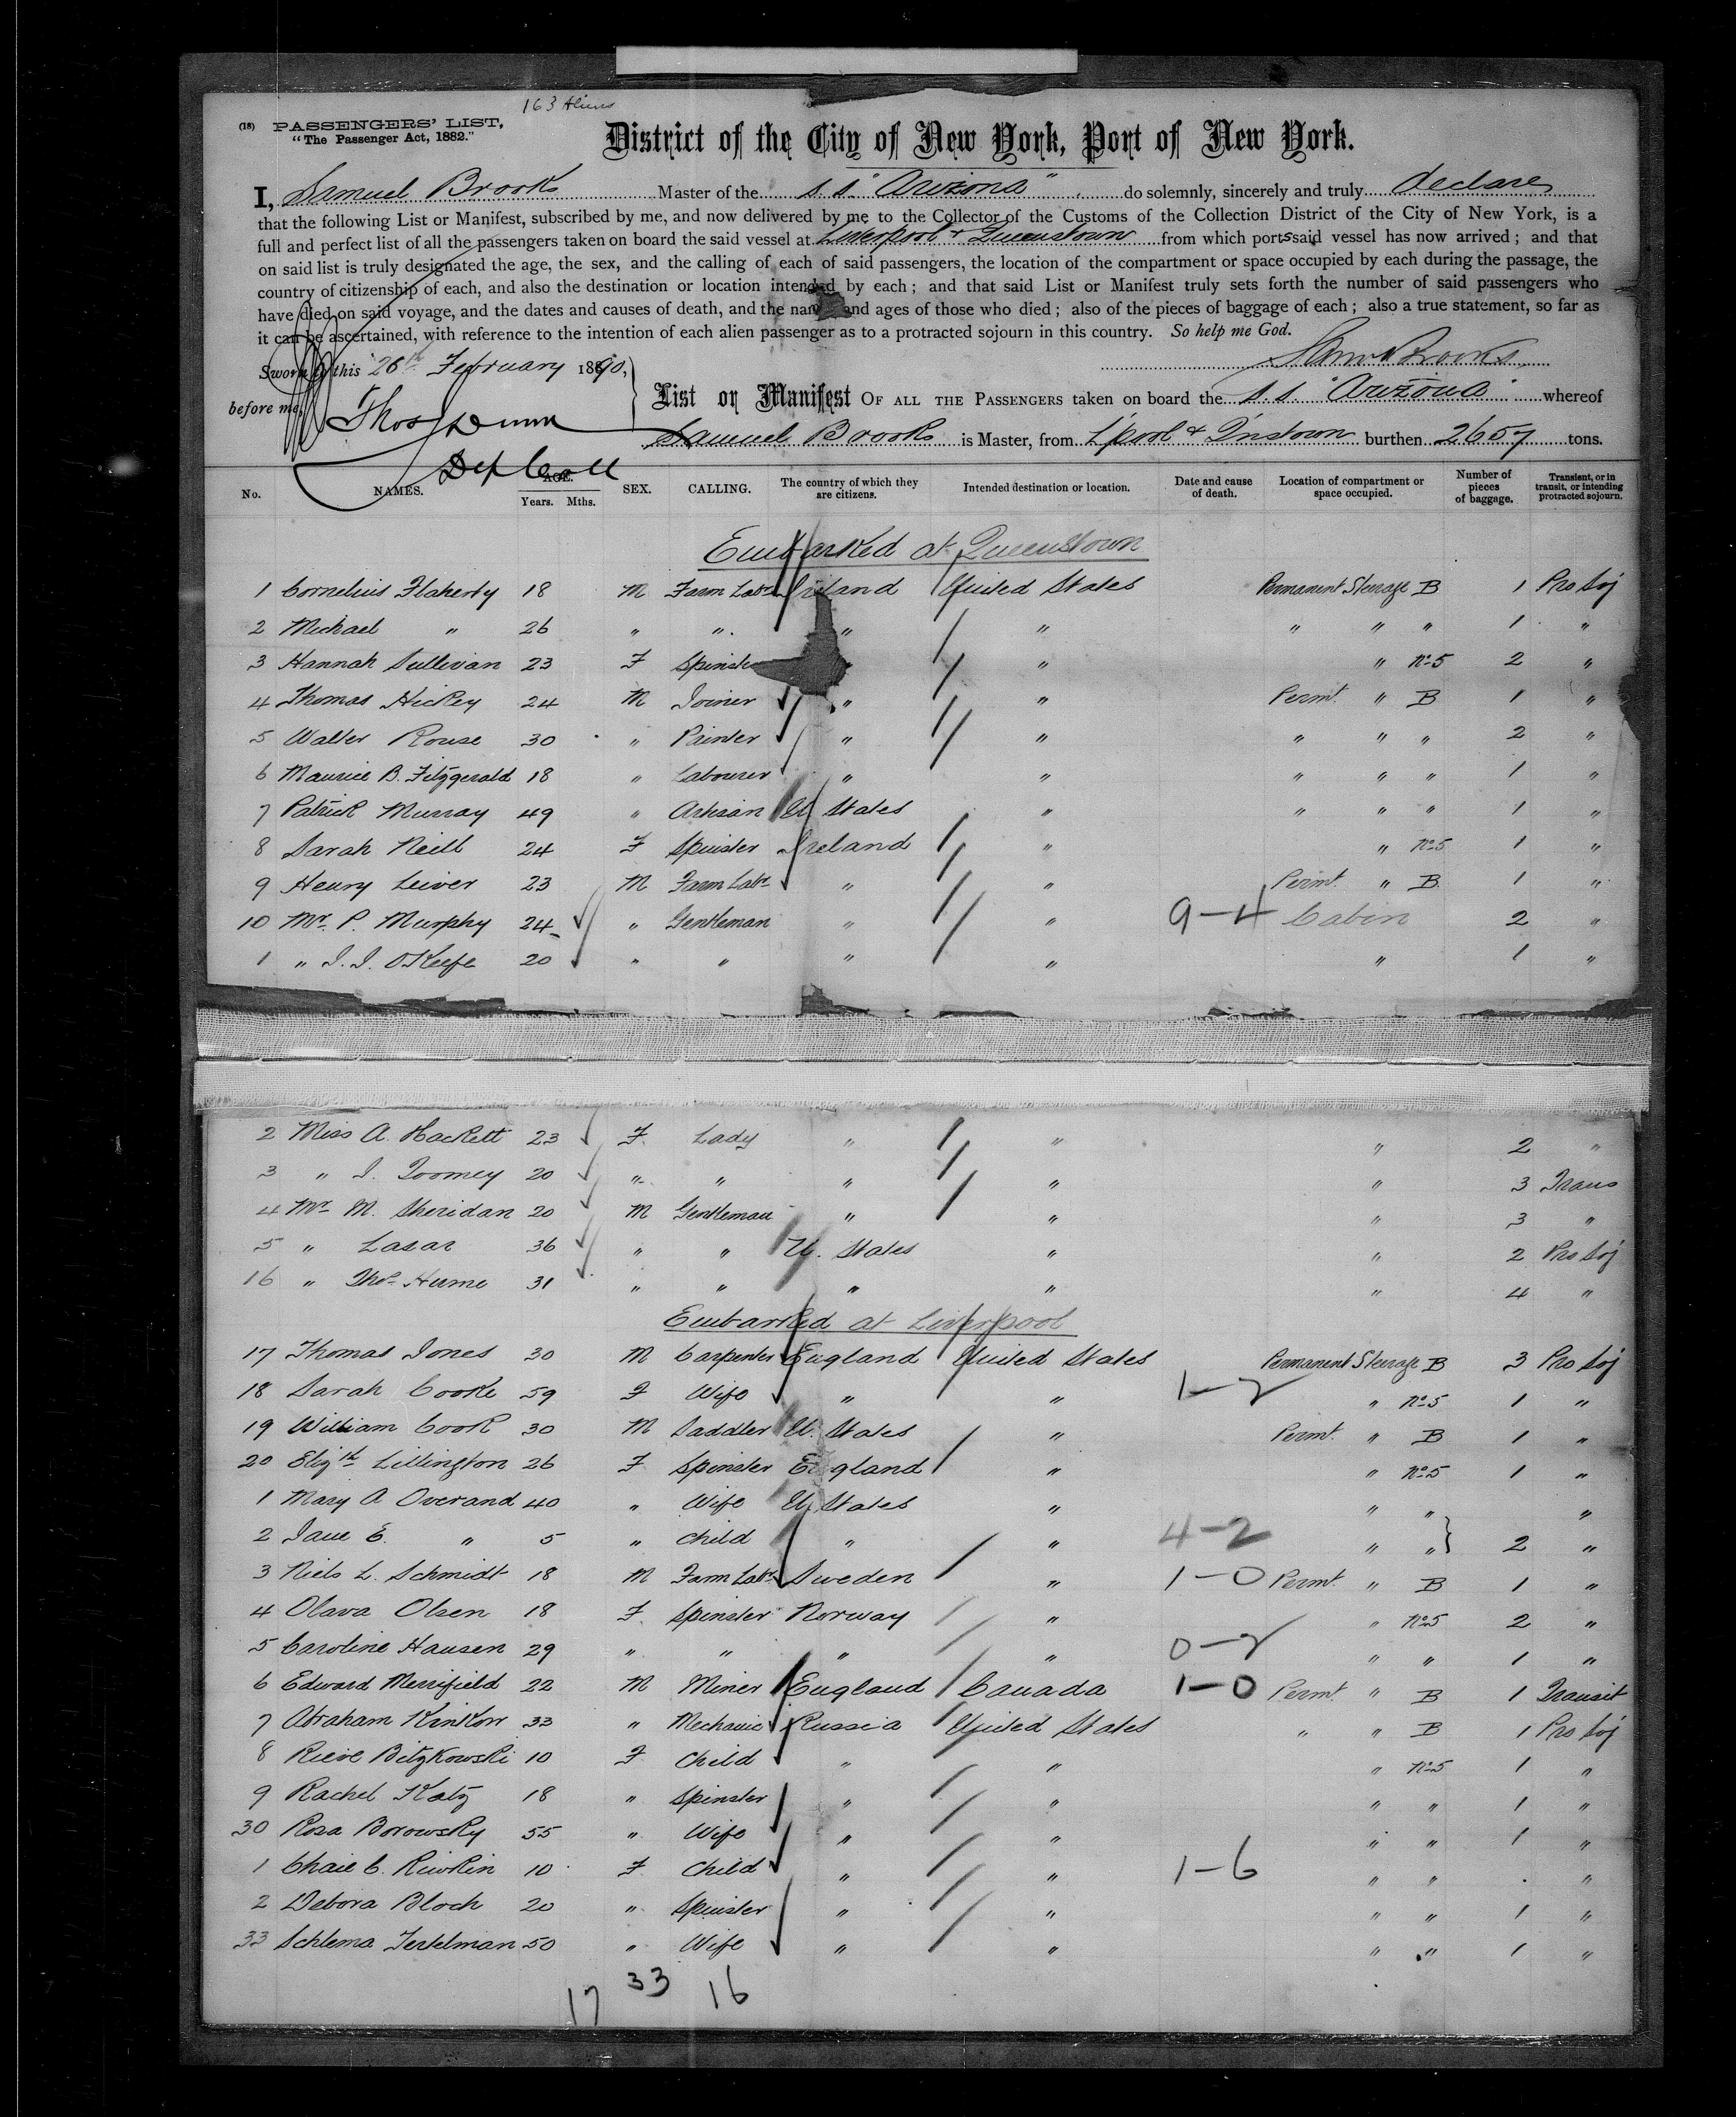 163 Aliens
(18) PASSENGERS' LIST,
"The Passenger Act, 1882."
District of the City of New York, Port of New York.
I, Samuel Brooks Master of the s.s. "Arizona" do solemnly, sincerely and truly declare
that the following List or Manifest, subscribed by me, and now delivered by me to the Collector of the Customs of the Collection District of the City of New York, is a
full and perfect list of all the passengers taken on board the said vessel at Liverpool & Queenstown from which ports said vessel has now arrived; and that
on said list is truly designated the age, the sex, and the calling of each of said passengers, the location of the compartment or space occupied by each during the passage, the
country of citizenship of each, and also the destination or location intended by each; and that said List or Manifest truly sets forth the number of said passengers who
have died on said voyage, and the dates and causes of death, and the nam and ages of those who died; also of the pieces of baggage of each; also a true statement, so far as
it can be ascertained, with reference to the intention of each alien passenger as to a protracted sojourn in this country. So help me God.
Sworn to this 26th February 1890, Saml Brooks
before me, Thos J Dunn
Dep Coll
List or Manifest OF ALL THE PASSENGERS taken on board the s.s. "Arizona" whereof
Samuel Brooks is Master, from L'pool & Q'nstown burthen 2657 tons.
No. NAMES. AGE. Years. Mths. SEX. CALLING. The country of which they are citizens. Intended destination or location. Date and cause of death. Location of compartment or space occupied. Number of pieces of baggage. Transient, or in transit, or intending protracted sojourn.
Embarked at Queenstown
1 Cornelius Flaherty 18 M Farm Labr Ireland United States Permanent Steerage B 1 Pro Soj
2 Michael " 26 " " " " " " " 1 "
3 Hannah Sullivan 23 F Spinst " " " No 5 2 "
4 Thomas Hickey 24 M Joiner " " Permt. " B 1 "
5 Walter Rouse 30 " Painter " " " " " 2 "
6 Maurice B. Fitzgerald 18 " Labourer " " " " " 1 "
7 Patrick Murray 49 " Artisan U States " " " " 1 "
8 Sarah Neill 24 F Spinster Ireland " " No 5 1 "
9 Henry Leiver 23 M Farm Labr " " Permt. " B 1 "
10 Mr. P. Murphy 24 " Gentleman " " 9-4 Cabin 2 "
1 " J. J. O'Keefe 20 " " " " " 1 "
2 Miss A. Hackett 23 F. Lady " " " 2 "
3 " J. Toomey 20 " " " " " 3 Trans
4 Mr M. Sheridan 20 M Gentleman " " " 3 "
5 " Lasar 36 " " U. States " " 2 Pro Soj
16 " Thos Hume 31 " " " " " 4 "
Embarked at Liverpool
17 Thomas Jones 30 M Carpenter England United States Permanent Steerage B 3 Pro Soj
18 Sarah Cooke 59 F Wife " " 1-2 " No 5 1 "
19 William Cook 30 M Saddler U. States " Permt. " B 1 "
20 Elizth Lillington 26 F Spinster England " " No 5 1 "
1 Mary A Overand 40 " Wife U. States " " " "
2 Jane E. " 5 " Child " " 4-2 " " } 2 "
3 Niels L. Schmidt 18 M Farm Labr Sweden " 1-0 Permt. " B 1 "
4 Olava Olsen 18 F. Spinster Norway " " No 5 2 "
5 Caroline Hansen 29 " " " " 0-2 " " 1 "
6 Edward Merrifield 22 M Miner England Canada 1-0 Permt. " B 1 Transit
7 Abraham Kinkow 33 " Mechanic Russia United States " " B 1 Pro Soj
8 Rieve Bitzkowski 10 F. Child " " " No 5 1 "
9 Rachel Katz 18 " Spinster " " " " 1 "
30 Rosa Borowsky 55 " Wife " " " " 1 "
1 Chaie C. Riwkin 10 F. Child " " 1-6 " " "
2 Debora Bloch 20 " Spinster " " " " 1 "
33 Schlema Tertelman 50 " Wife " " " " 1 "
17 33 16